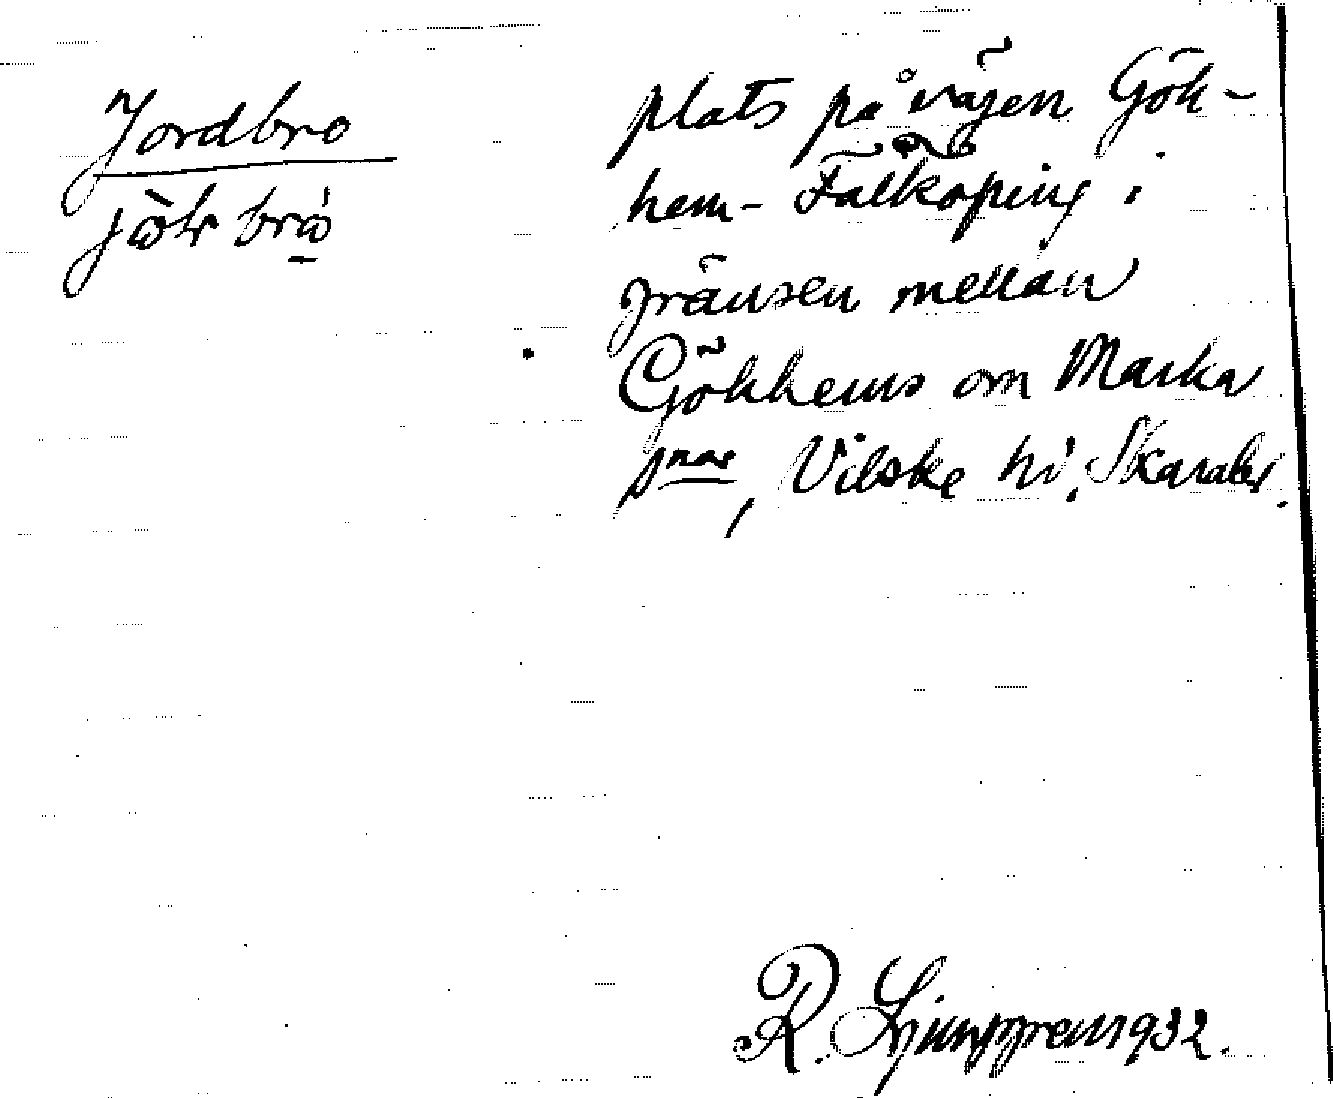 Jordbro
plats på vägen Gök-
hem - Falköping i
gränsen mellan
Gökhems om Marka
snar, Vilske hd, Skarabg.
R. Ljunggren 1932.